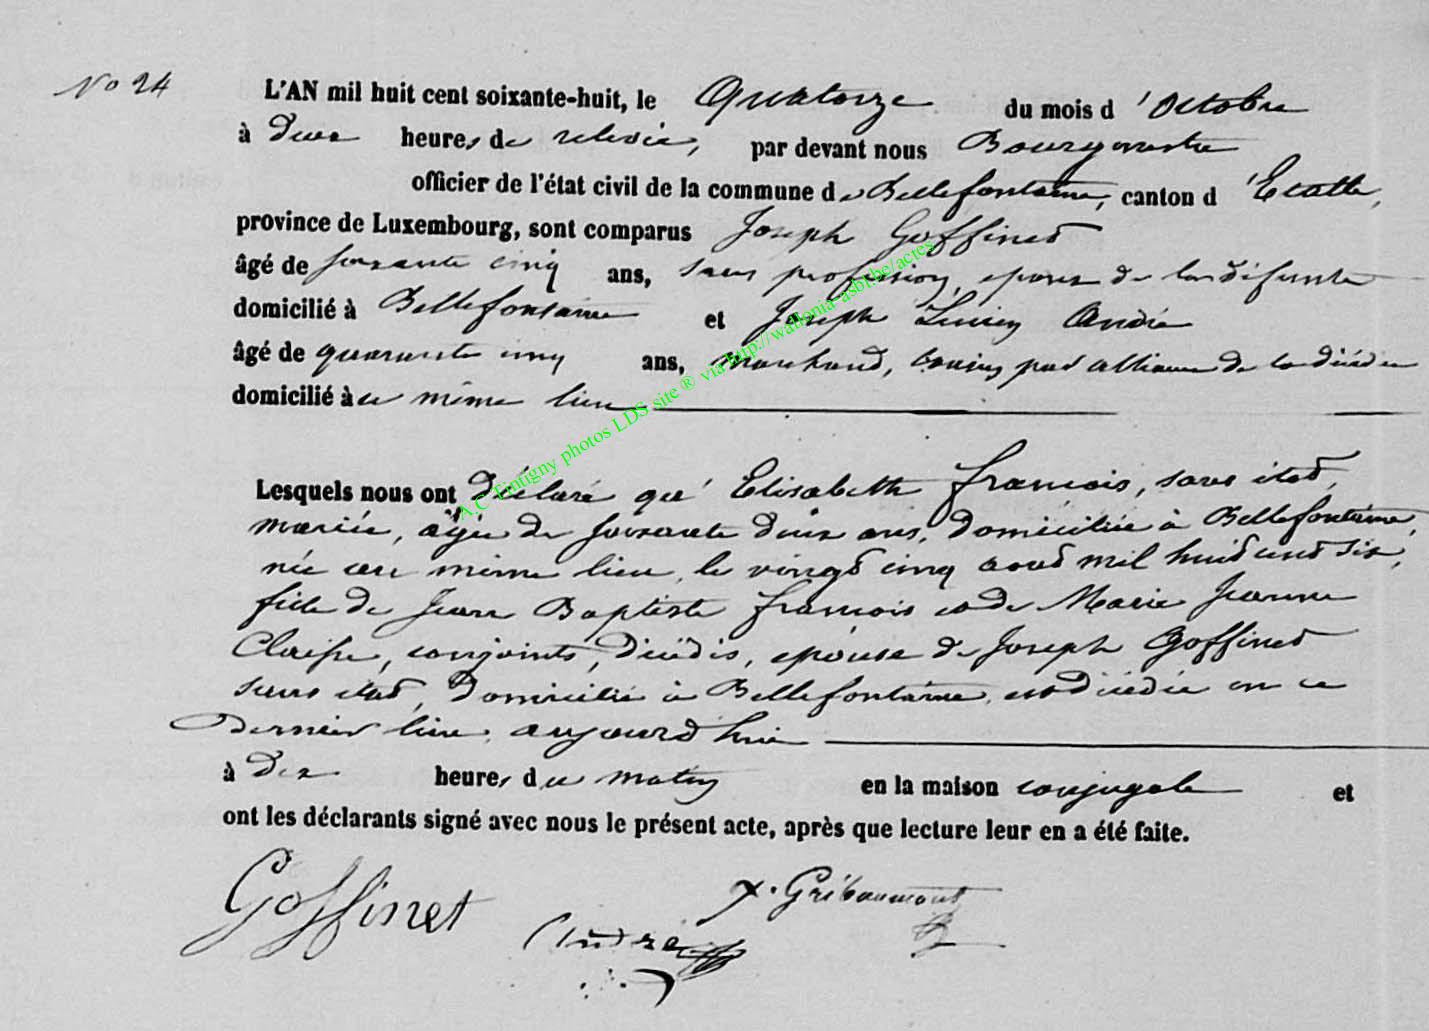 No 24
L'AN mil huit cent soixante-huit, le Quatorze du mois d'Octobre
à deux heures de relevée, par devant nous Bourgmestre
officier de l'état civil de la commune de Bellefontaine, canton d'Etalle,
province de Luxembourg, sont comparus Joseph Goffinet
âgé de soixante cinq ans, sans profession, epoux de la défunte
domicilié à Bellefontaine et Joseph Lucien André
âgé de quarante cinq ans, marchand, cousin par alliance de la décédée
domicilié à ce même lieu
Lesquels nous ont déclaré que Elisabeth François, sans état,
mariée, agée de soixante deux ans, domiciliée à Bellefontaine,
née au même lieu, le vingt cinq aout mil huit cent six,
fille de Jean Baptiste François et de Marie Jeanne
conjoints, décédés, épouse de Joseph Goffinet
sans état, domicilié à Bellefontaine, est décédée en ce
dernier lieu, aujourd'hui
à dix heures du matin en la maison conjugale et
ont les déclarants signé avec nous le présent acte, après que lecture leur en a été faite.
Goffinet
André
Gribaumont
A.C Tintigny photos LDS site ® via http://wallonia-asbl.be/actes